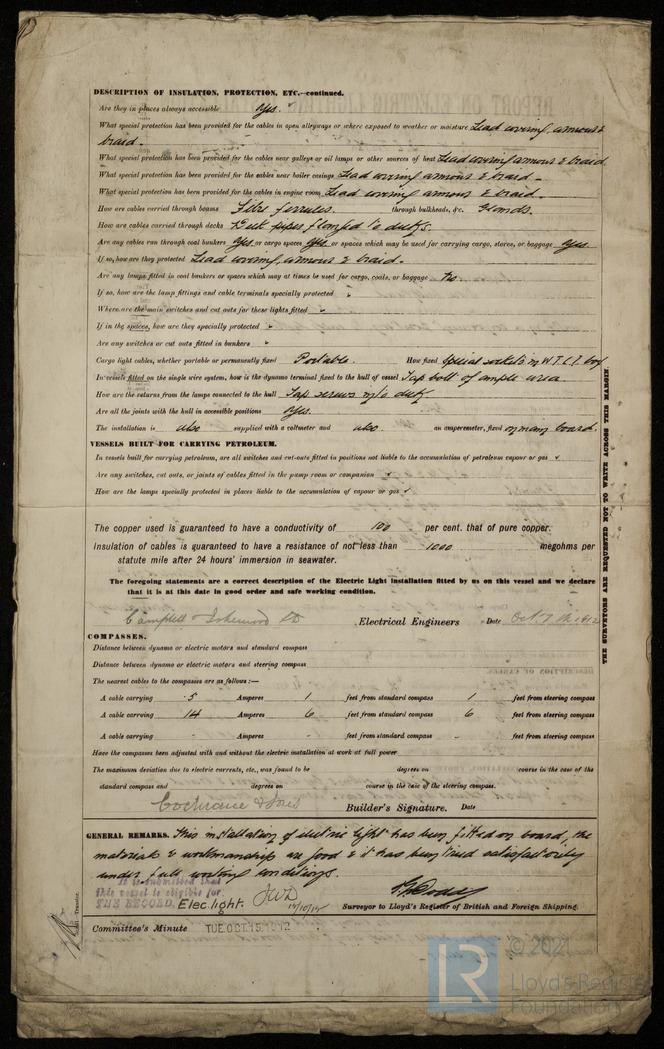 DESCRIPTION OF INSULATION, PROTECTION, ETC.—continued.
Are they in places always accessible Yes.
What special protection has been provided for the cables in open alleyways or where exposed to weather or moisture Lead covering, armour &
braid.
What special protection has been provided for the cables near galleys or oil lamps or other sources of heat Lead covering armour & braid
What special protection has been provided for the cables near boiler casings Lead covering armour & braid.
What special protection has been provided for the cables in engine room Lead covering armour & braid.
How are cables carried through beams Fibre ferrules. through bulkheads, &c. Glands.
How are cables carried through decks Deck pipes flanged to decks.
Are any cables run through coal bunkers Yes or cargo spaces yes or spaces which may be used for carrying cargo, stores, or baggage yes
If so, how are they protected Lead covering, armour & braid.
Are any lamps fitted in coal bunkers or spaces which may at times be used for cargo, coals, or baggage No.
If so, how are the lamp fittings and cable terminals specially protected
Where are the main switches and cut outs for these lights fitted
If in the spaces, how are they specially protected
Are any switches or cut outs fitted in bunkers
Cargo light cables, whether portable or permanently fixed Portable. How fixed Special sockets in W.T.C.I. box
In vessels fitted on the single wire system, how is the dynamo terminal fixed to the hull of vessel Tap bolt of ample area.
How are the returns from the lamps connected to the hull Tap screws
Are all the joints with the hull in accessible positions Yes.
The installation is also supplied with a voltmeter and also an amperemeter, fixed on main board.
VESSELS BUILT FOR CARRYING PETROLEUM.
In vessels built for carrying petroleum, are all switches and cut-outs fitted in positions not liable to the accumulation of petroleum vapour or gas
Are any switches, cut outs, or joints of cables fitted in the pump room or companion
How are the lamps specially protected in places liable to the accumulation of vapour or gas
The copper used is guaranteed to have a conductivity of 100 per cent. that of pure copper.
Insulation of cables is guaranteed to have a resistance of not less than 1000 megohms per
statute mile after 24 hours' immersion in seawater.
The foregoing statements are a correct description of the Electric Light installation fitted by us on this vessel and we declare
that it is at this date in good order and safe working condition.
Campbell & Isherwood Ld Electrical Engineers Date Oct. 7th 1912
COMPASSES.
Distance between dynamo or electric motors and standard compass
Distance between dynamo or electric motors and steering compass
The nearest cables to the compasses are as follows:—
A cable carrying ·5 Amperes 1 feet from standard compass 1 feet from steering compass
A cable carrying 14 Amperes 6 feet from standard compass 6 feet from steering compass
A cable carrying - Amperes - feet from standard compass - feet from steering compass
Have the compasses been adjusted with and without the electric installation at work at full power
The maximum deviation due to electric currents, etc., was found to be degrees on course in the case of the
standard compass and degrees on course in the case of the steering compass.
Cochrane & Sons Builder's Signature. Date
GENERAL REMARKS. This installation of electric light has been fitted on board, the
materials & workmanship are good & it has been tried satisfactorily
under full working conditions.
It is submitted that
this vessel is eligible for
THE RECORD. Elec. light. JWD 14/10/12
Surveyor to Lloyd's Register of British and Foreign Shipping.
Committee's Minute TUE. OCT. 15. 1912
THE SURVEYORS ARE REQUESTED NOT TO WRITE ACROSS THIS MARGIN.
LR
© 2021
Lloyd's Register
Foundation